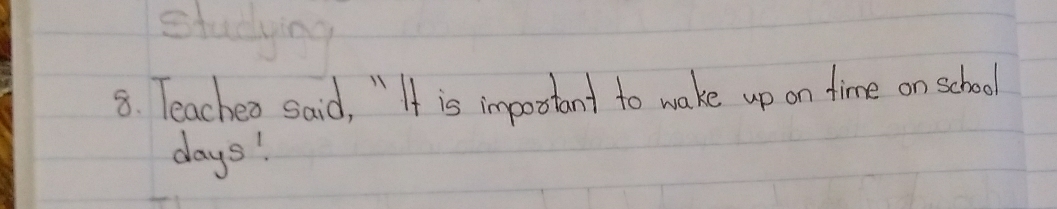 studying
8. Teacher said, "It is important to wake up on time on school
days!